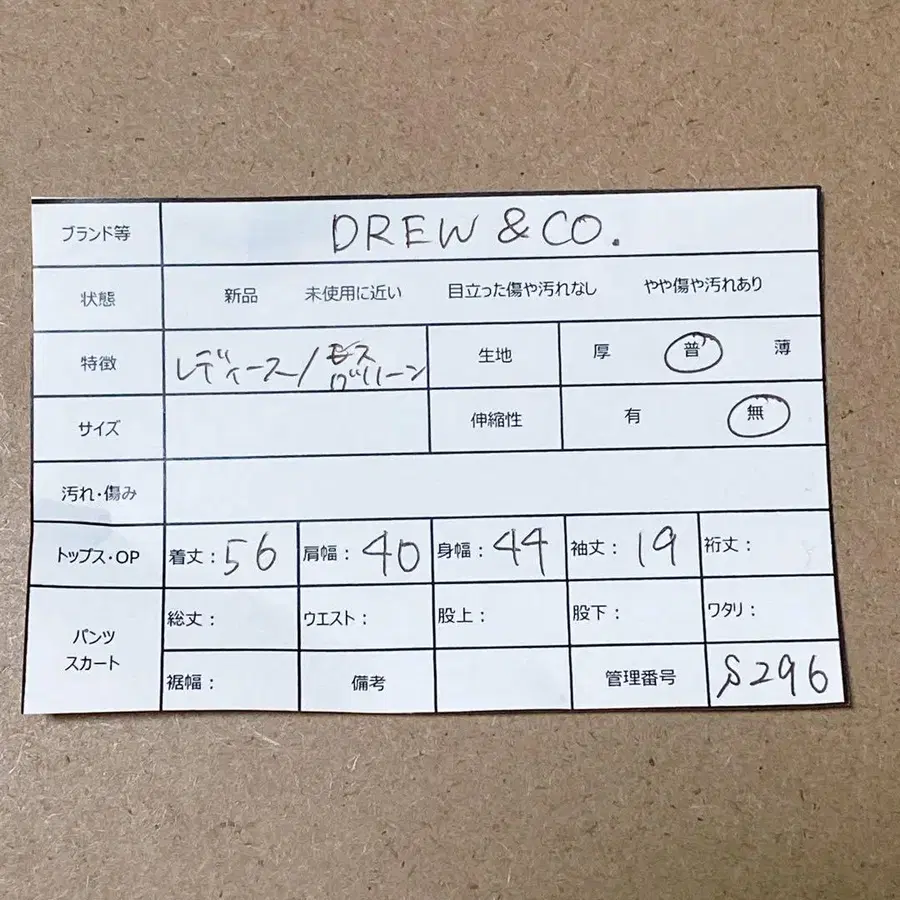 ブランド等 DREW & CO.
状態 新品 未使用に近い 目立った傷や汚れなし やや傷や汚れあり
特徴 レディース/ 生地 厚 普 薄
サイズ 伸縮性 有 無
汚れ・傷み
トップス・OP 着丈：56 肩幅：40 身幅：44 袖丈：19 裄丈：
パンツ
スカート
総丈： ウエスト： 股上： 股下： ワタリ：
裾幅： 備考 管理番号 S296